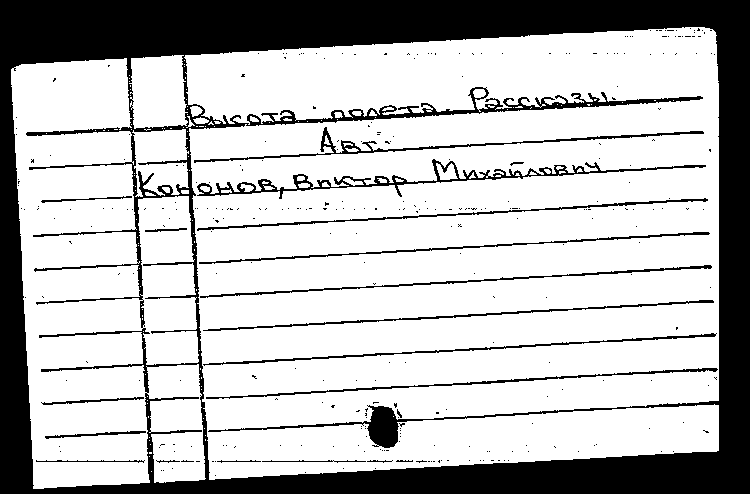 Высота полета. Рассказы.
Авт.:
Кононов, Виктор Михайлович